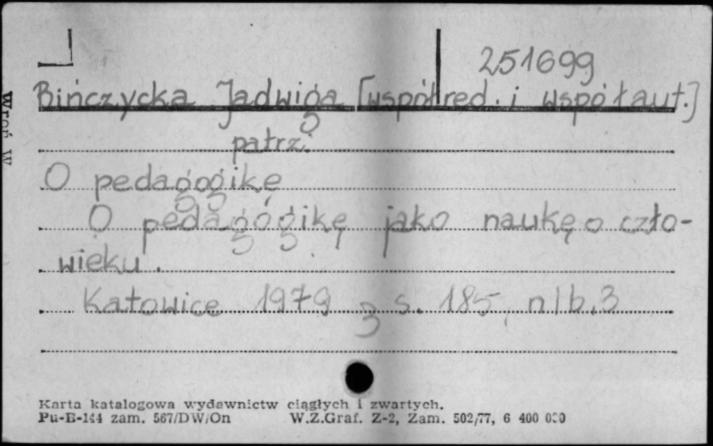 251699
Bińczycka Jadwiga [współred. i współaut.]
patrz:
O pedagogikę
O pedagogikę jako naukę o czło-
wieku.
Katowice 1979 s. 185, nlb. 3
Karta katalogowa wydawnictw ciągłych i zwartych.
Pu-B-144 zam. 567/DW/On W.Z.Graf. Z-2, Zam. 502/77, 6 400 000